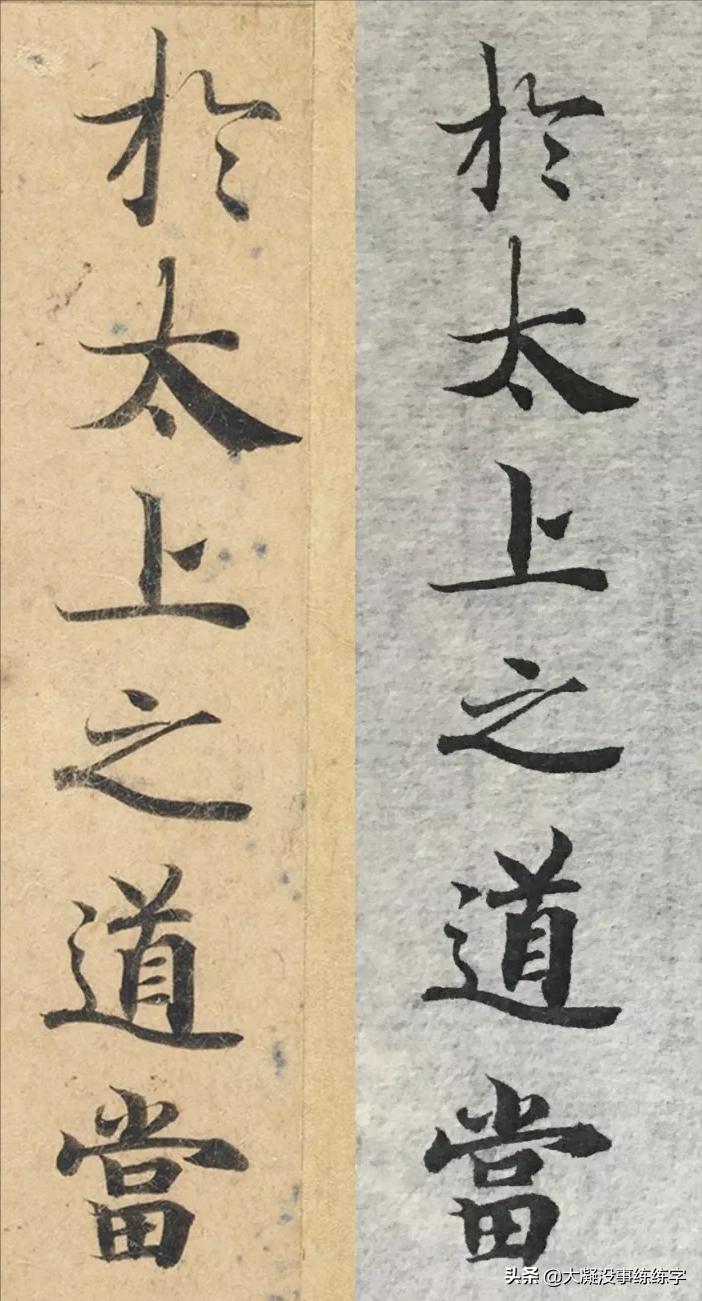 於太上之道當
於太上之道當
头条 @大凝没事练练字